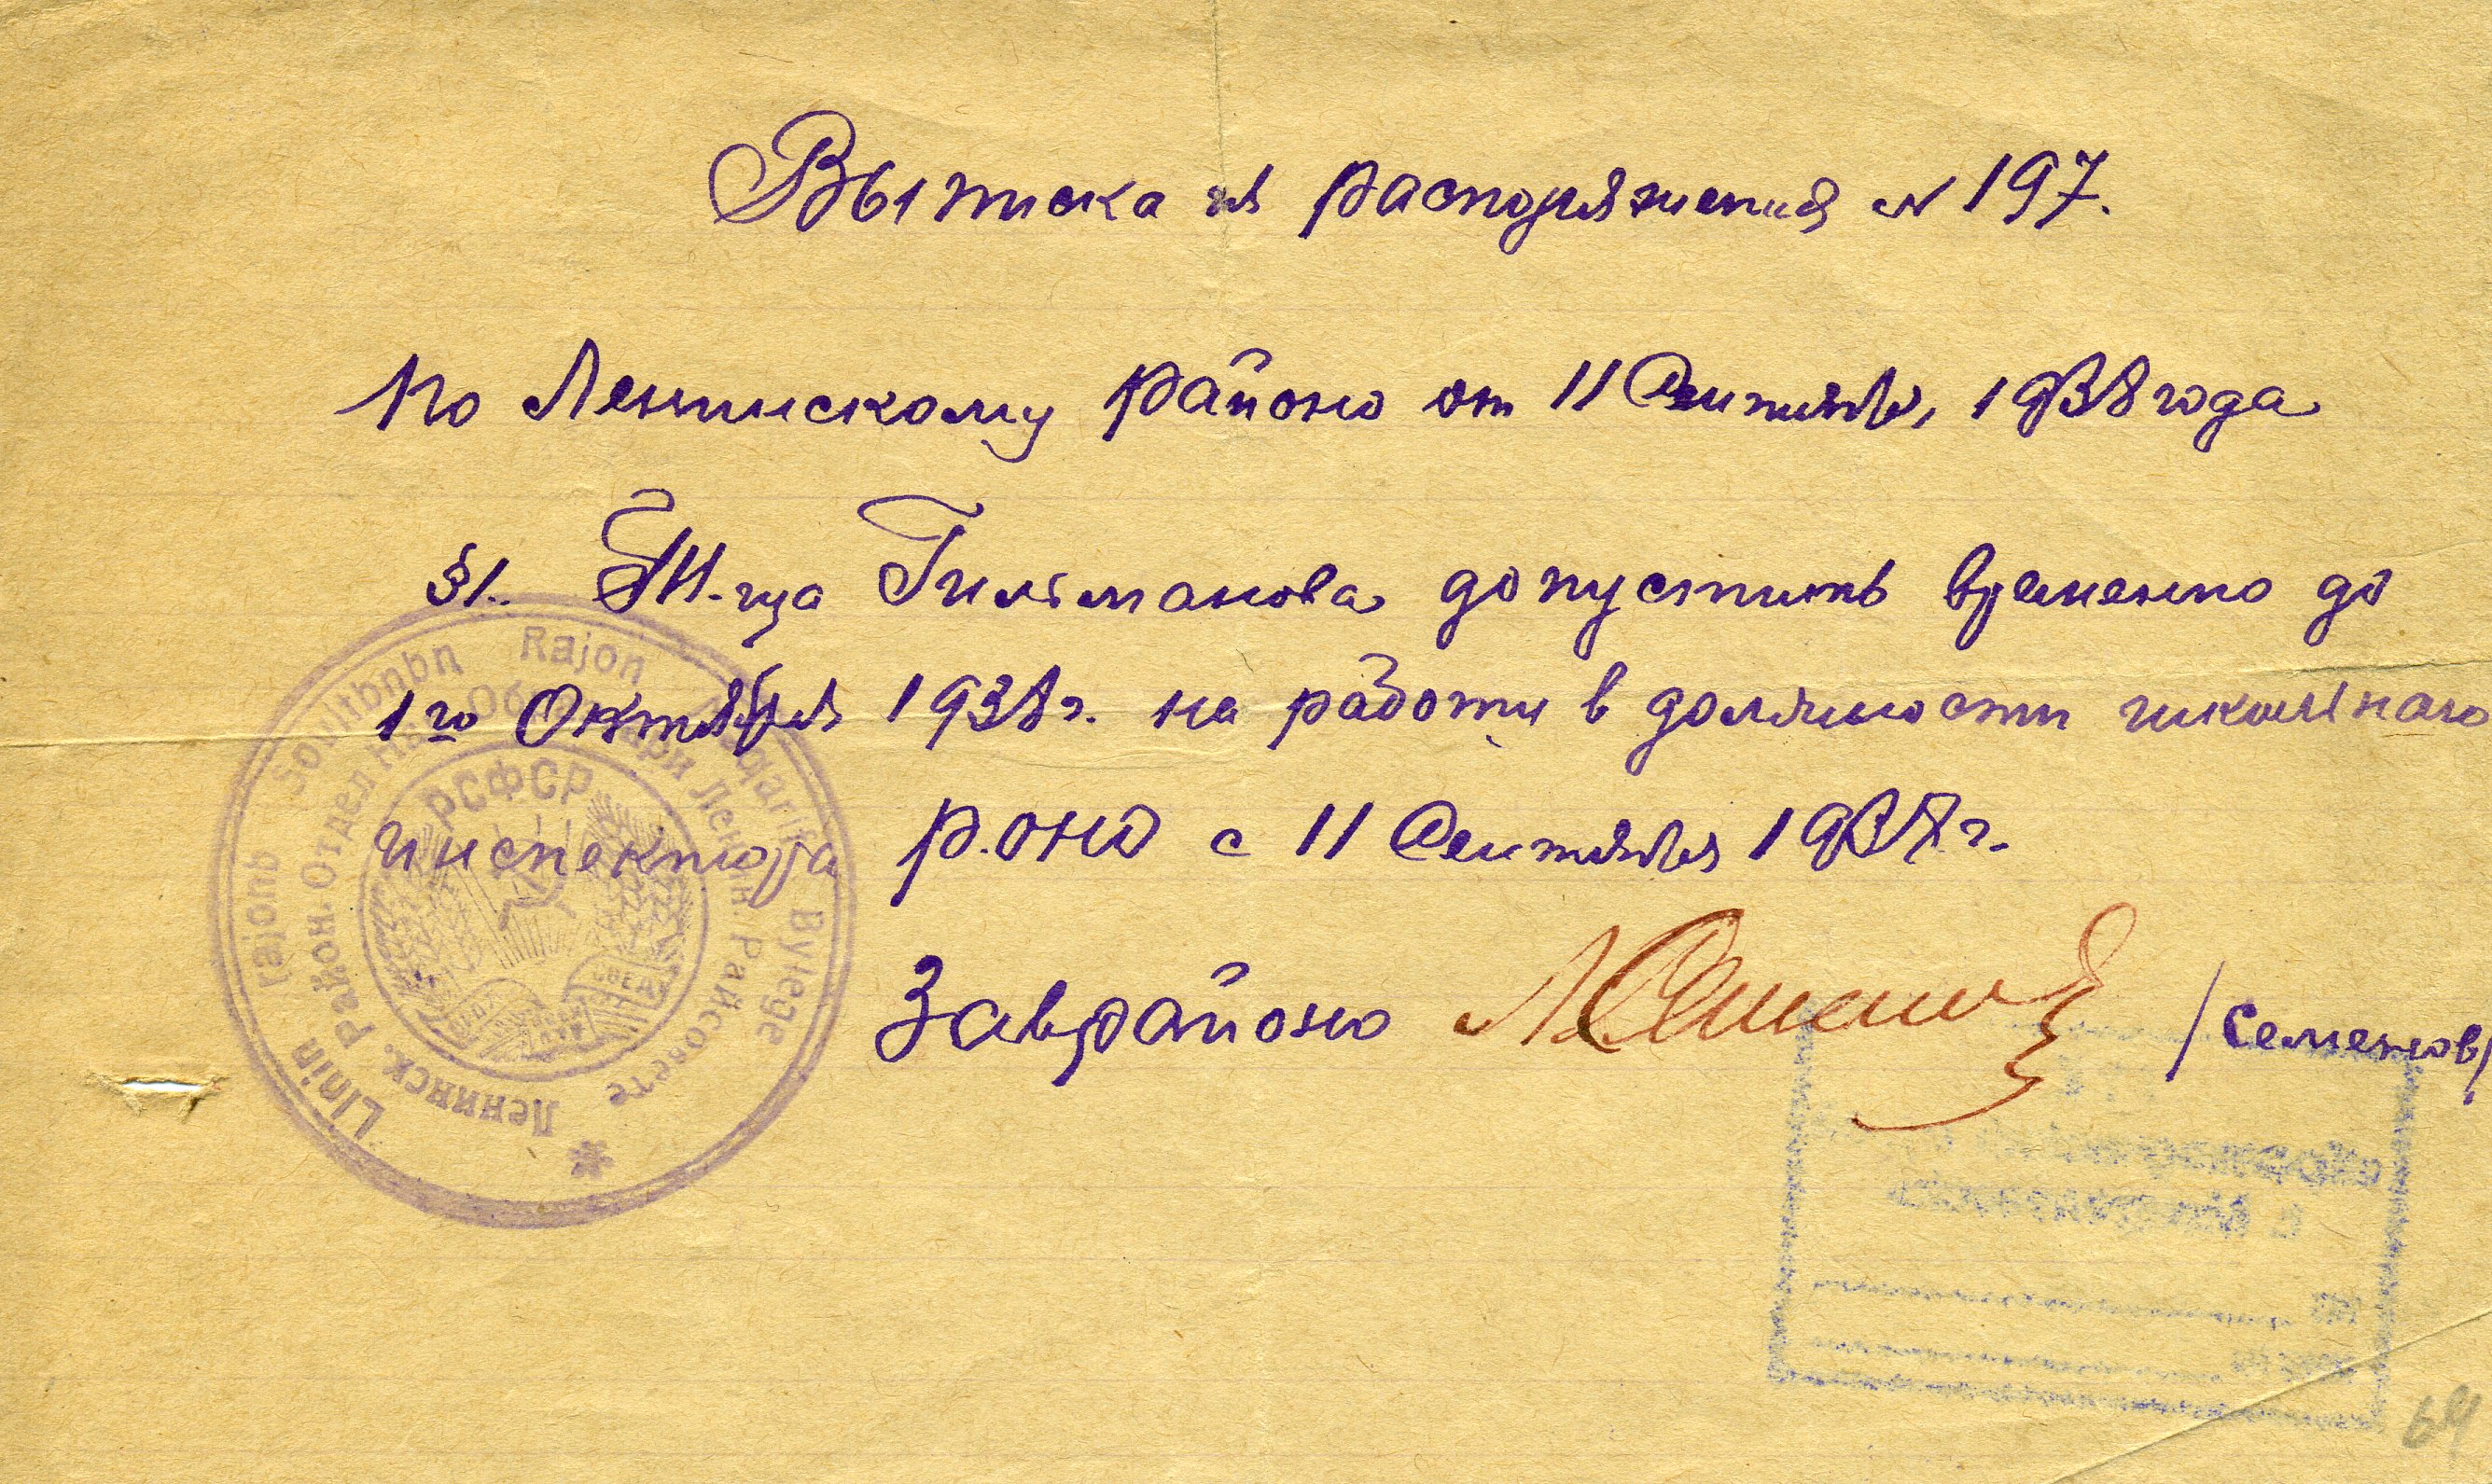 Выписка из распоряжения № 197.
по Ленинскому районо от 11 Сентября, 1938 года
§1. Т-ща Гильманова допустить временно до
1го Октября 1938 г. на работу в должности школьного
инспектора р.оно с 11 Сентября 1938 г.
Заврайоно /Семенов/
Linin rajonь Rajon Bylege
Ленинск. Район. Отдел Райсовете
РСФСР
64